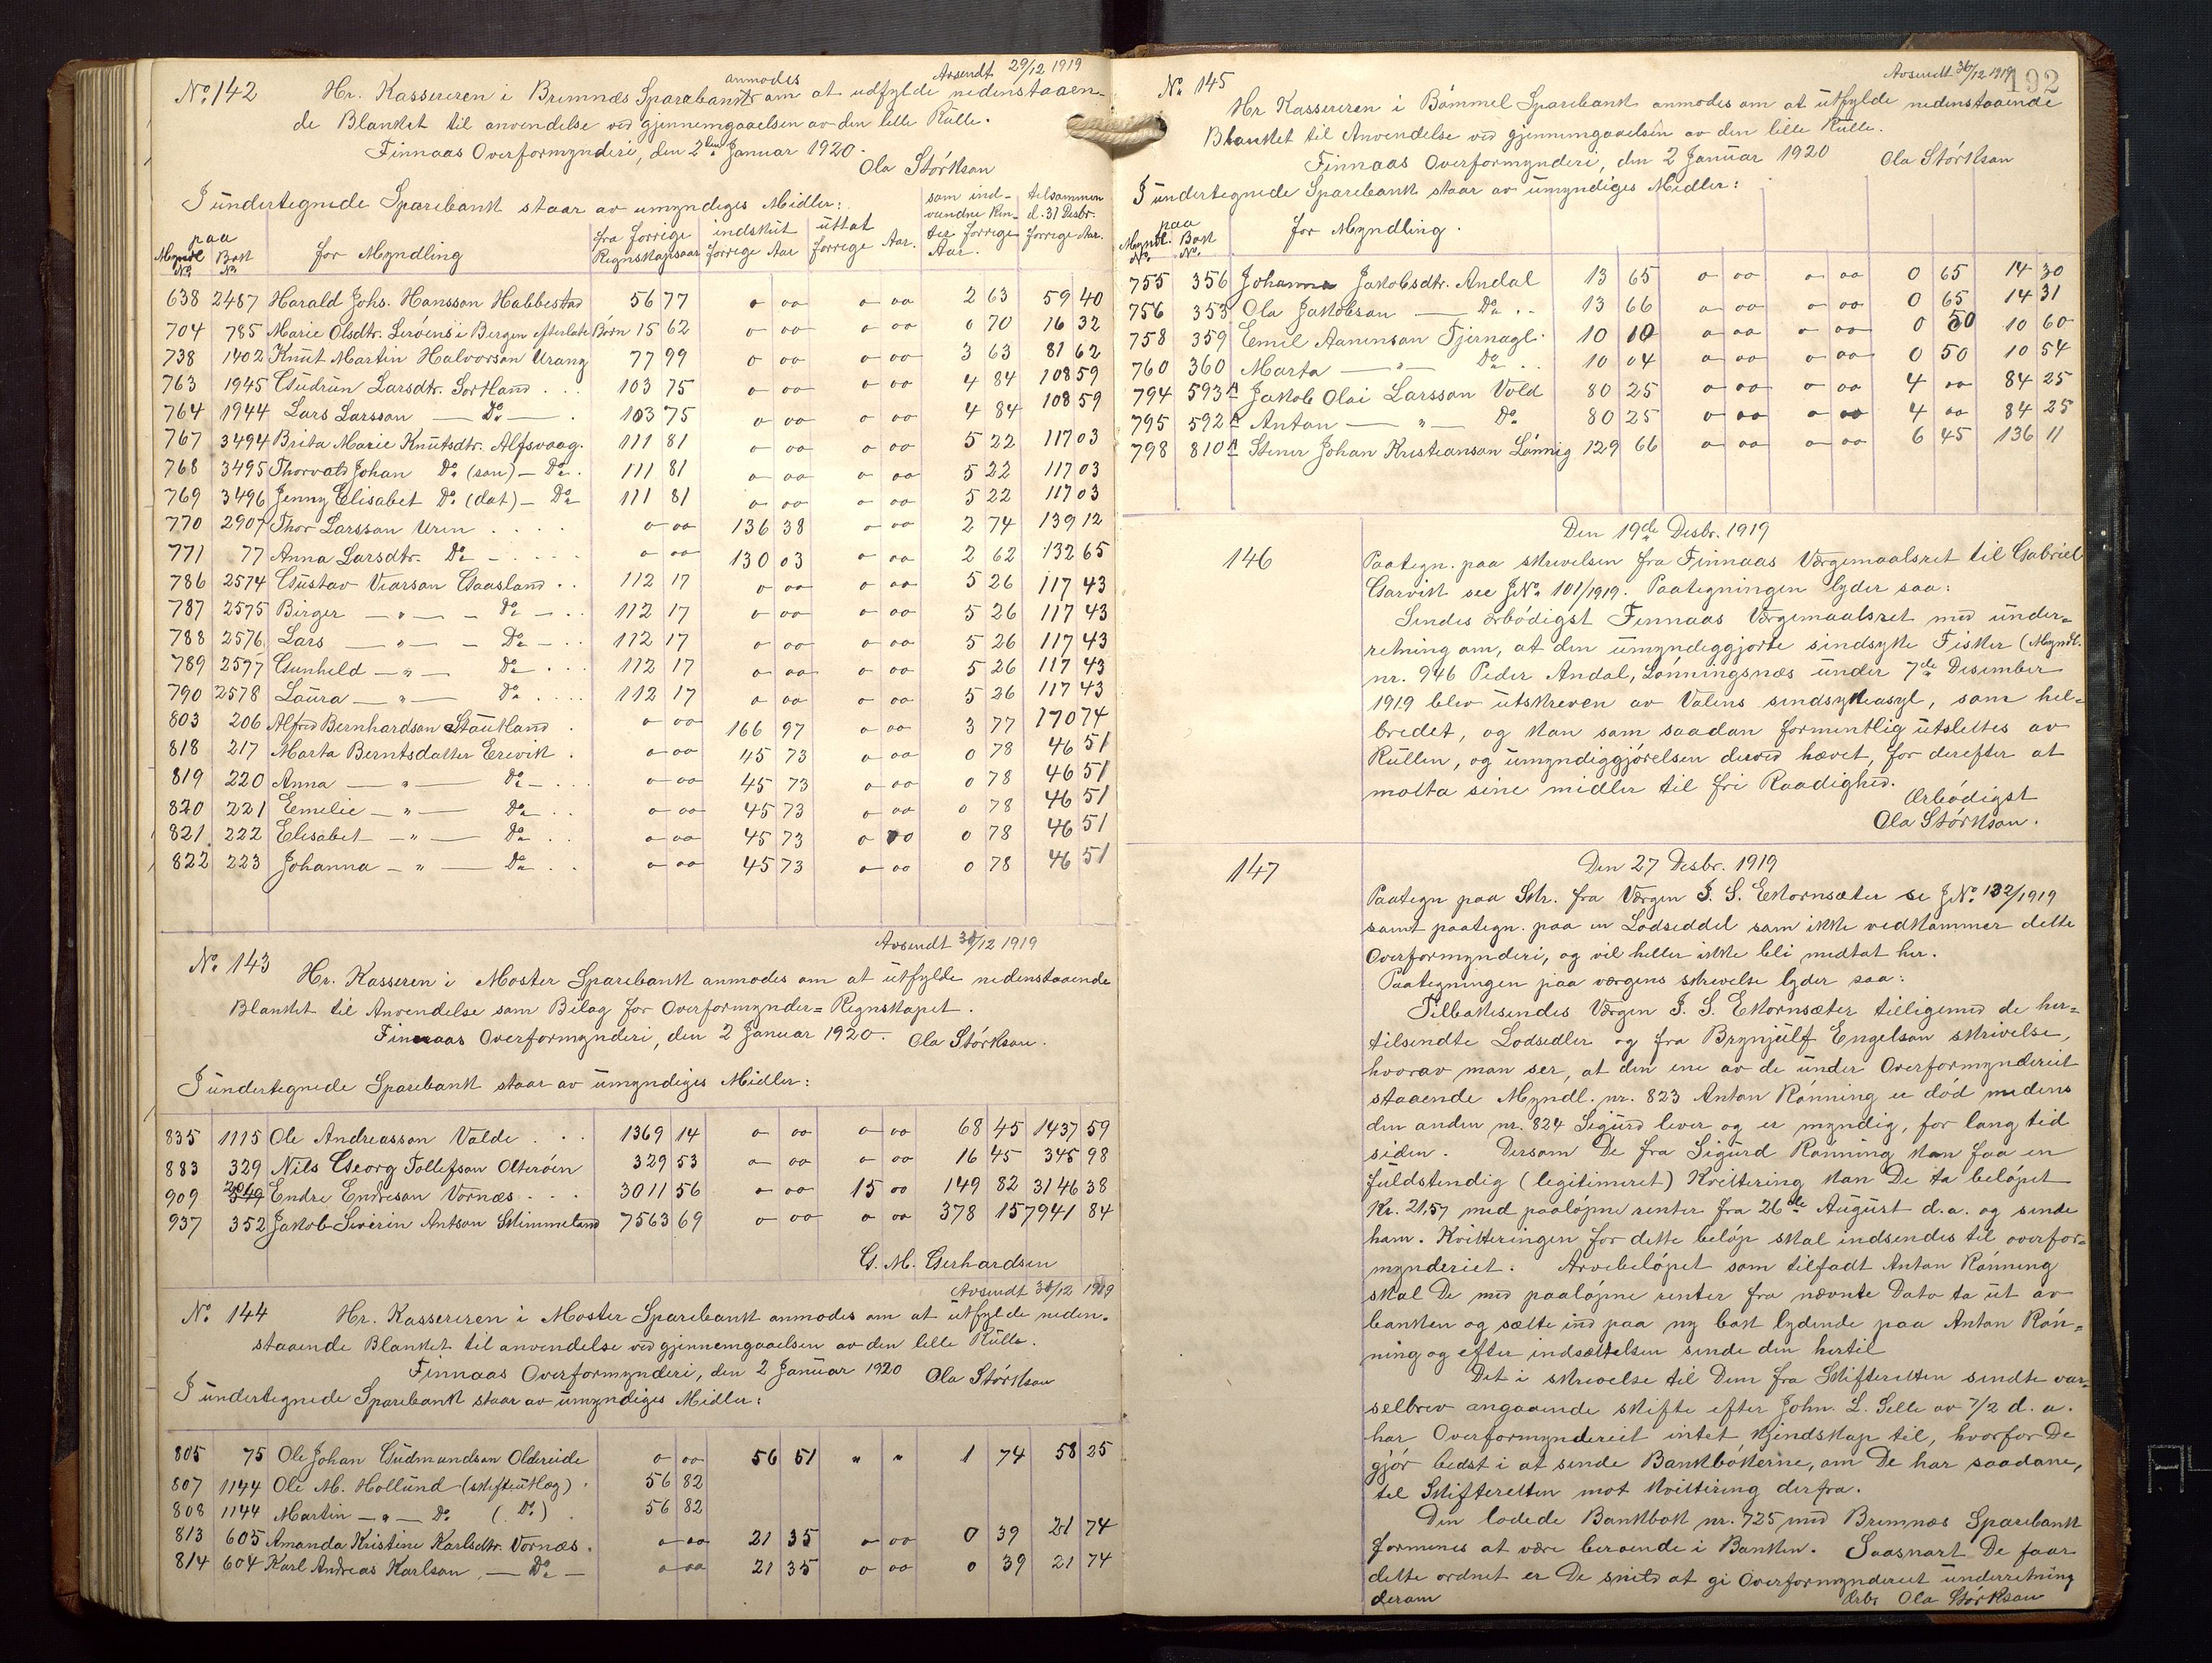 Avsendt 29/12 1919
No. 142 Hr. Kassereren i Bremnæs Sparebank anmodes om at udfylde nedenstaaen-
de Blanket til anvendelse ved gjennemgaaelsen av den lille Rulle.
Finnaas Overformynderi, den 2den Januar 1920.
Ola Störkson
I undertegnede Sparebank staar av umyndiges Midler:
paa
Myndl No. Bok No. for Myndling fra forrige Regnskapsaar indskut forrige Aar uttat forrige Aar. som ind-vundne Ren-ter forrige Aar. tilsammen d. 31 Desbr. forrige Aar.
638 2487 Harald Johs. Hansson Habbestad 56 77 o oo o oo 2 63 59 40
704 785 Marie Olsdtr. Leröens i Bergen efterlate Börn 15 62 o oo o oo 0 70 16 32
738 1402 Knut Martin Halvorson Urang 77 99 o oo o oo 3 63 81 62
763 1945 Gudrun Larsdtr. Sortland . . . 103 75 o oo o oo 4 84 108 59
764 1944 Lars Larsson — Do — . 103 75 o oo o oo 4 84 108 59
767 3494 Brita Marie Knutsdtr. Alfsvaag. 111 81 o oo o oo 5 22 117 03
768 3495 Thorvald Johan Do (son) — Do . 111 81 o oo o oo 5 22 117 03
769 3496 Jenny Elisabet Do (dat) — Do 111 81 o oo o oo 5 22 117 03
770 2907 Thor Larsson Uren . . . . o oo 136 38 o oo 2 74 139 12
771 77 Anna Larsdtr. Do - . . . . o oo 130 03 o oo 2 62 132 65
786 2574 Gustav Viarson Gaasland . . 112 17 o oo o oo 5 26 117 43
787 2575 Birger — " — — Do — . . 112 17 o oo o oo 5 26 117 43
788 2576 Lars — " — — Do — . . 112 17 o oo o oo 5 26 117 43
789 2577 Gunhild — " — Do . . . 112 17 o oo o oo 5 26 117 43
790 2578 Laura — " — Do . . . . 112 17 o oo o oo 5 26 117 43
803 206 Alfred Bernhardson Stautland . o oo 166 97 o oo 3 77 170 74
818 217 Marta Berntsdatter Erevik . o oo 45 73 o oo 0 78 46 51
819 220 Anna — " — Do — . . . o oo 45 73 o oo 0 78 46 51
820 221 Emelie — " — Do . . o oo 45 73 o oo 0 78 46 51
821. 222 Elisabet — " — Do . . o oo 45 73 o oo 0 78 46 51
822 223 Johanna — " — Do . . o oo 45 73 o oo 0 78 46 51
Avsendt 30/12 1919
No. 143 Hr. Kasseren i Moster Sparebank anmodes om at utfylde nedenstaaende
Blanket til Anvendelse som Bilag for Overformynder= Regnskapet.
Finnaas Overformynderi, den 2 Januar 1920. Ola Störkson.
I undertegnede Sparebank staar av umyndiges Midler:
835 1115 Ole Andreasson Valde . . . 1369 14 o oo o oo 68 45 1437 59
883 329 Nils Georg Tollefson Olteröen 329 53 o oo o oo 16 45 345 98
909 Endre Endreson Vornæs . . . 3011 56 o oo 15 oo 149 82 3146 38
937 352 Jakob Severin Antson Skimmeland 7563 69 o oo o oo 378 15 7941 84
G. M. Gerhardsen
Avsendt 30/12 1919
No. 144 Hr. Kassereren i Moster Sparebank anmodes om at utfylde neden-
staaende Blanket til anvendelse ved gjennemgaaelsen av den lille Rulle.
Finnaas Overformynderi, den 2 Januar 1920 Ola Störkson
I undertegnede Sparebank staar av umyndiges Midler:
805 75 Ole Johan Gudmundson Oldereide o oo 56 51 " " 1 74 58 25
807 1144 Ole M. Hollund (skifteutlæg) . 56 82
808 1144 Martin — " — Do (Do) . 56 82
813 605 Amanda Kristine Karlsdtr. Vornæs . o oo 21 35 o oo 0 39 21 74
814 604 Karl Andreas Karlson — Do — o oo 21 35 o oo 0 39 21 74
192
Avsendt 30/12 1919
No. 145 Hr Kassereren i Bömmel Sparebank anmodes om at utfylde nedenstaaende
Blanket til Anvendelse ved gjennemgaaelsen av den lille Rulle.
Finnaas Overformynderi, den 2 Januar 1920 Ola Störkson
I undertegnede Sparebank staar av umyndiges Midler:
paa
Myndl. No. Bok No. for Myndling.
755 356 Johanna Jakobsdtr. Andal 13 65 o oo o oo 0 65 14 30
756 353 Ola Jakobson — Do . . 13 66 o oo o oo 0 65 14 31
758 359 Emil Aanenson Tjernagl. 10 10 o oo o oo 0 50 10 60
760 360 Marta — " — Do . . 10 04 o oo o oo 0 50 10 54
794 593A Jakob Olai Larsson Vold 80 25 o oo o oo 4 oo 84 25
795 592A Anton — " — Do 80 25 o oo o oo 4 oo 84 25
798 810A Stener Johan Kristianson Lönnig 129 66 o oo o oo 6 45 136 11
Den 19de Desbr. 1919
146 Paategn. paa skrivelsen fra Finnaas Værgemaalsret til Gabriel
Garvik see JNo. 101/1919. Paategningen lyder saa:
Sendes ærbödigst Finnaas Værgemaalsret med under=
retning om, at den umyndiggjorte sindsyke Fisker (Myndl.
nr. 946 Peder Andal, Lönningsnæs under 7de Desember
1919 blev utskreven av Valens sindsykeasyl, som hel=
bredet, og kan som saadan formentlig utslettes av
Rullen, og umyndiggjörelsen derved hævet, for derefter at
motta sine midler til fri Raadighed.
Ærbödigst
Ola Störkson.
Den 27 Desbr. 1919
147 Paategn paa Skr. fra Værgen J. S. Ekornsæter se JNo. 132/1919
samt paategn. paa en Lodseddel som ikke vedkommer dette
Overformynderi, og vil heller ikke bli medtat her.
Paategningen paa værgens skrivelse lyder saa:
Tilbakesendes Værgen J. S. Ekornsæter tilligemed de her=
tilsendte Lodsedler og fra Brynjulf Engelson skrivelse,
hvorav man ser, at den ene av de under Overformynderiet
staaende Myndl. nr. 823 Anton Rönning er död medens
den anden nr. 824 Sigurd lever og er myndig, for lang tid
siden. Dersom De fra Sigurd Rönning kan faa en
fuldstendig (legitimeret) Kvittering kan De ta belöpet
Kr. 21,57 med paalöpne renter fra 26de August d.a. og sende
ham. Kvitteringen for dette belöp skal indsendes til overfor=
mynderiet. Arvebelöpet som tilfadt Anton Rönning
skal De med paalöpne renter fra nævnte Dato ta ut av
banken og sætte ind paa ny bok lydende paa Anton Rön=
ning og efter indsættelsen sende den hertil
Det i skrivelse til Dem fra Skifteretten sendte var=
selbrev angaaende skifte efter John. L. Selle av 7/2 d. a.
har Overformynderiet intet kjendskap til, hvorfor De
gjör bedst i at sende Bankbökerne, om De har saadane,
til Skifteretten mot kvittering derfra.
Den lodede Bankbok nr. 725 med Bremnæs Sparebank
formenes at være beroende i Banken. Saasnart De faar
dette ordnet er De snild at gi Overformynderiet underretning
derom Ærb. Ola Störkson